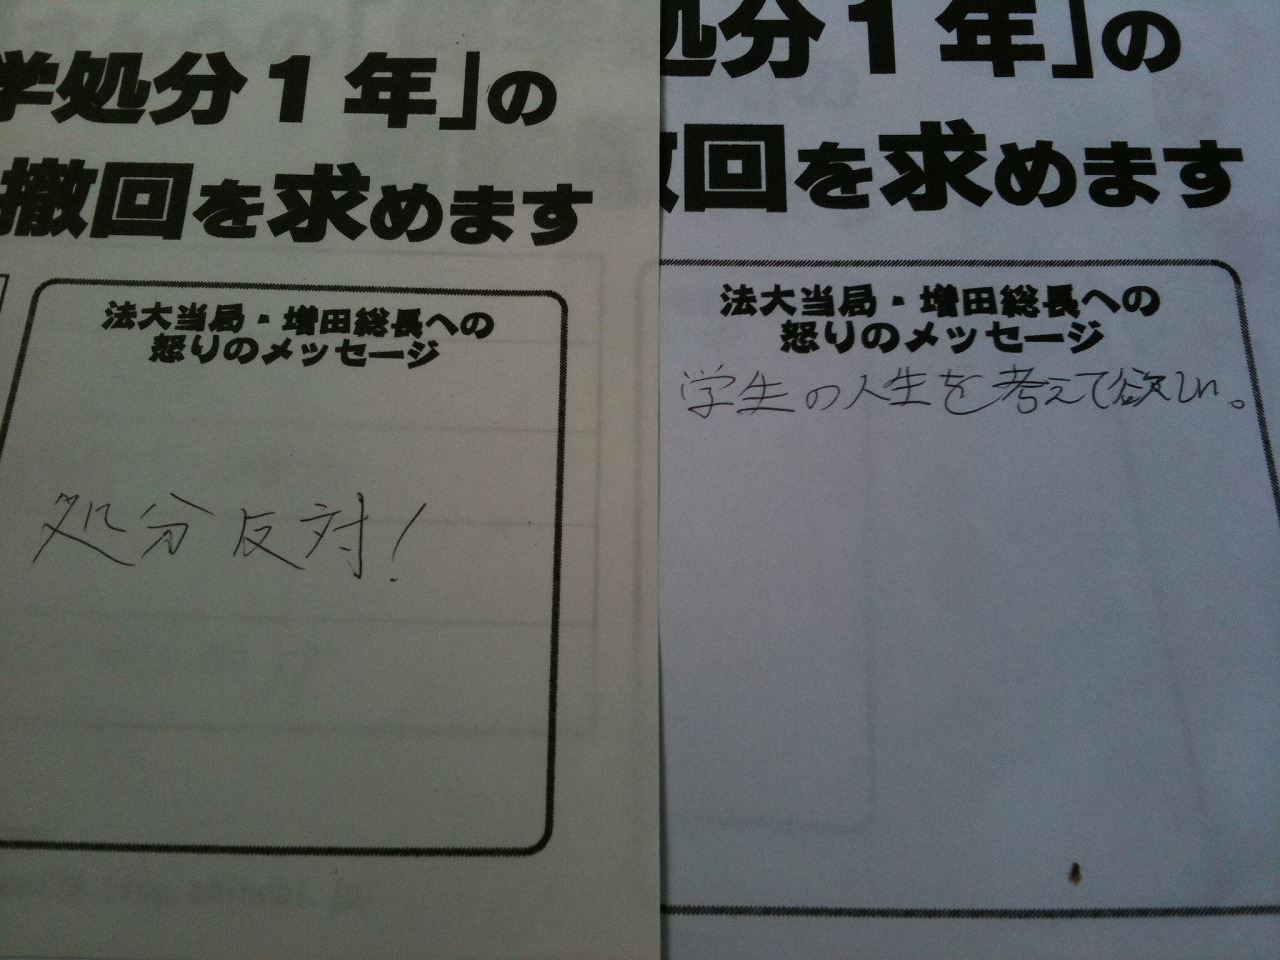 学処分１年」の
撤回を求めます
法大当局・増田総長への
怒りのメッセージ
処分反対！
処分１年」の
回を求めます
法大当局・増田総長への
怒りのメッセージ
学生の人生を考えて欲しい。